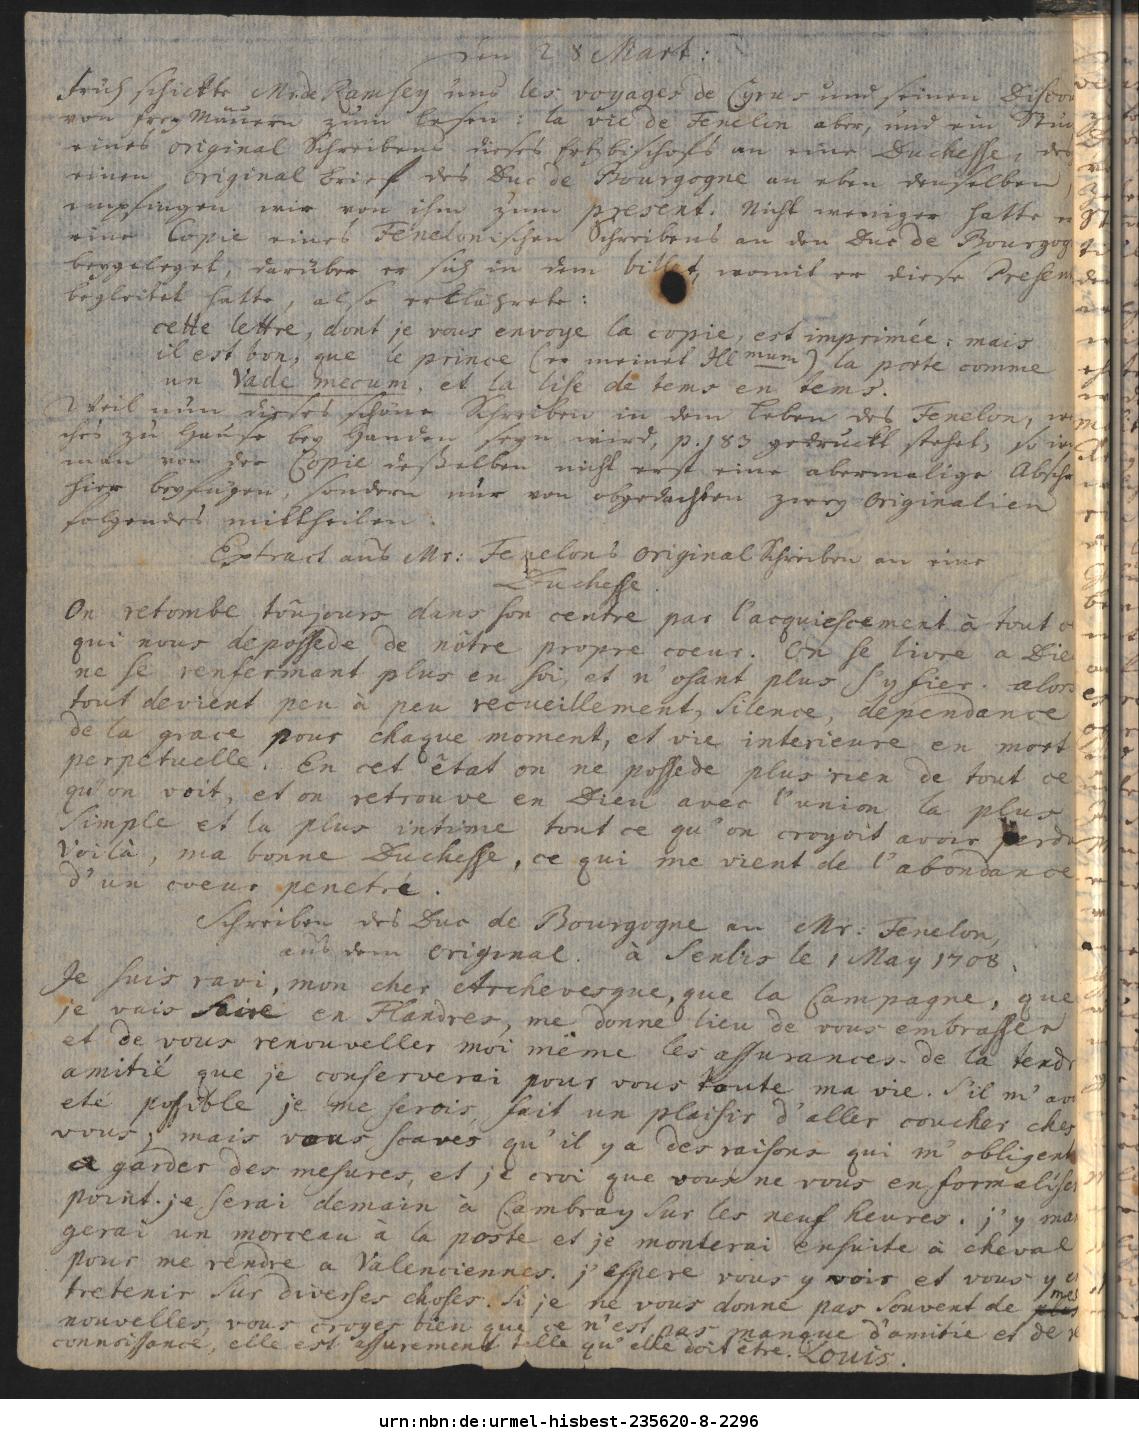 den 28 Mart:
Früh schickte Mr. de Ramsey uns les voyages de Cyrus und seinen Discou
von frey Mäuern zum lesen: la vie de Fenelon aber, und ein Stüc
eines original Schreibens dieses Ertzbischofs an eine Duchesse, des
einen original brief des Duc de Bourgogne an eben denselben,
empfingen wir von ihm zum present. Nicht weniger hatte
eine Copie eines Fenelonischen Schreibens an den Duc de Bourgog
beygeleget, darüber er sich in dem billet, womit er diese Presen
begleitet hatte, also erklährete:
cette lettre, dont je vous envoye la copie, est imprimée: mais
il est bon, que le prince (er meinet Hl mum) la porte comme
un Vade mecum, et la lise de tems en tems.
Weil nun dieses schöne Schreiben in dem Leben des Fenelon,
ches zu Hause bey Handen seyn wird, p. 183 gedruckt stehet, so
man von der Copie deßelben nicht erst eine abermalige Abschr
hier beyfügen, sondern nur von obgedachten zwey Originalien
folgendes mittheilen:
Extract aus Mr: Fenelons original Schreiben an eine
Duchesse.
On retombe toûjours dans son centre par l'acquiescement à tout c
qui nous depossede de nôtre propre coeur. On se livre a Die
ne se renfermant plus en soi, et n'osant plus s'y fier. alors
tout devient peu à peu recueillement, silence, dependance
de la grace pour chaque moment, et vie interieure en mort
perpetuelle. En cet êtat on ne possede plus rien de tout ce
qu'on voit, et on retrouve en Dieu avec l'union la plus
simple et la plus intime tout ce qu'on croyoit avoir perdu
Voilà, ma bonne Duchesse, ce qui me vient de l'abondance
d'un coeur penetré.
Schreiben des Duc de Bourgogne an Mr: Fenelon,
aus dem original. à Senlis le 1 May 1708.
Je suis ravi, mon cher Archevesque, que la Campagne, que
je vais faire en Flandres, me donne lieu de vous embrasser
et de vous renouveller moi même les assurances de la tendr
amitié que je conserverai pour vous toute ma vie. S'il m'av
eté possible je me serois fait un plaisir d'aller coucher ches
vous; mais vous scaves qu'il y a des raisons qui m'obligent
a garder des mesures, et je croi que vous ne vous en formalise
point. je serai demain à Cambray sur les neuf heures. j'y man
gerai un morceau à la poste et je monterai ensuite à cheval
pour me rendre a Valenciennes. j'espere vous y voir et vous y
tretenir sur diverses choses. Si je ne vous donne pas souvent de mes
nouvelles, vous croyes bien que ce n'est pas manque d'amitie et de re
connoissance, elle est assurement telle qu'elle doit etre. Louis.
urn:nbn:de:urmel-hisbest-235620-8-2296